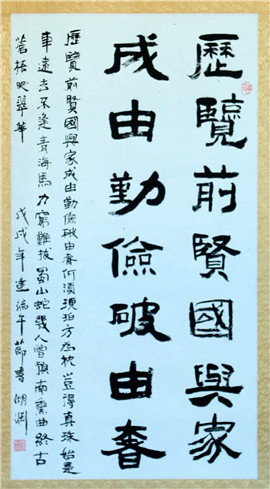 歷覽前賢國與家
成由勤儉破由奢
歷覽前賢國與家成由勤儉破由奢何須琥珀方為枕豈得真珠始是
車遠去不逢青海馬力窮難拔蜀山蛇幾人曾預南薰曲終古
蒼梧哭翠華 戊戌年逢端午節書